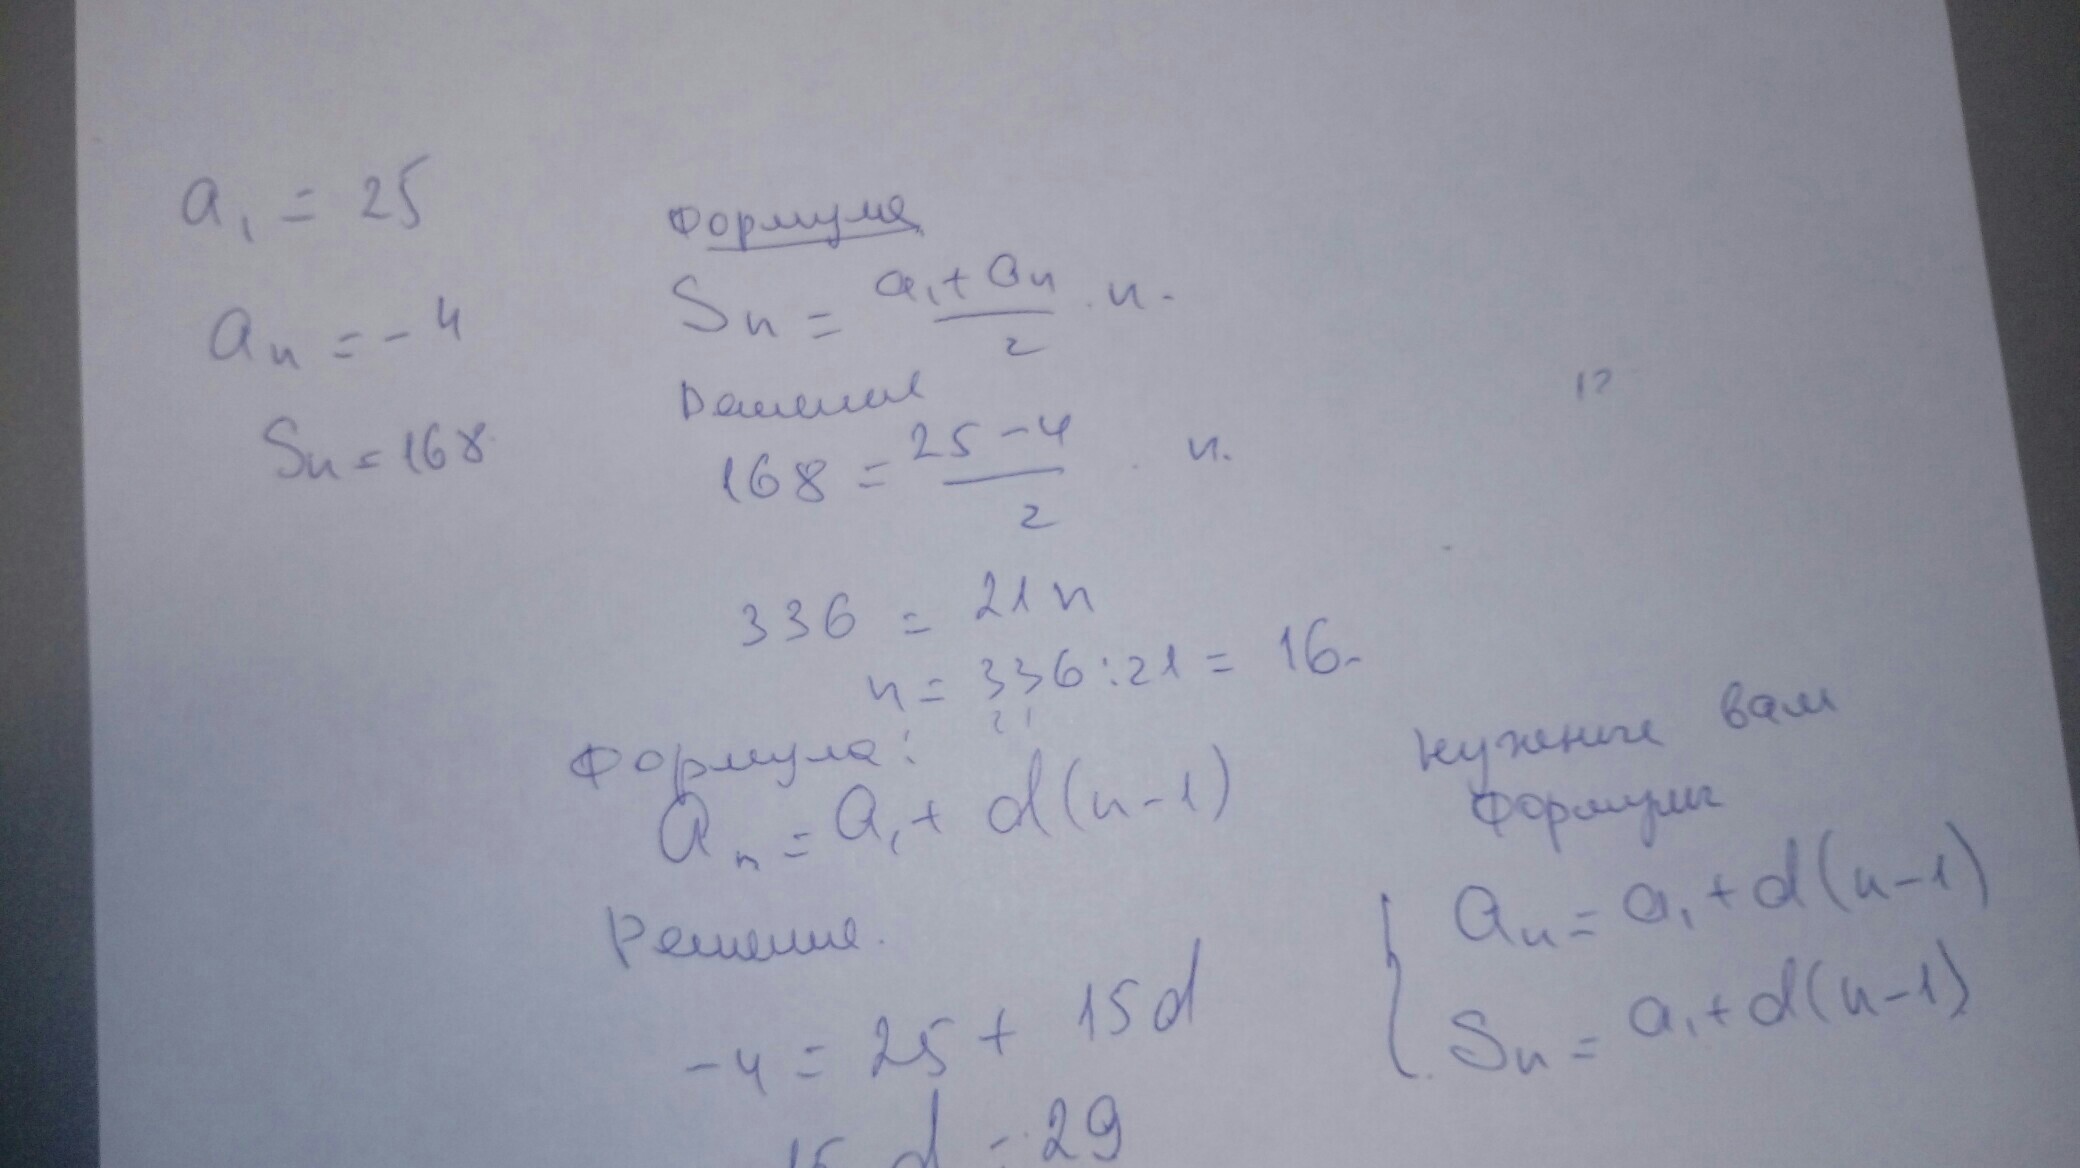 a₁ = 25
aₙ = -4
Sₙ = 168
Формула
Sₙ = a₁ + aₙ / 2 · n.
Решение
168 = 25 - 4 / 2 · n.
12
336 = 21n
n = 336 : 21 = 16.
21
Формула:
aₙ = a₁ + d(n-1)
Решение.
-4 = 25 + 15d
15d = 29
нужные вам
формулы
aₙ = a₁ + d(n-1)
Sₙ = a₁ + d(n-1)